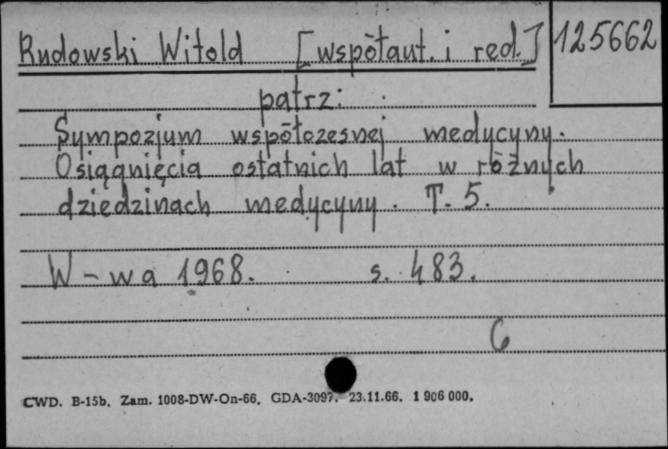 Rudowski Witold [współaut. i red.] 125662
patrz:
Sympozjum współczesnej medycyny.
Osiągnięcia ostatnich lat w różnych
dziedzinach medycyny. T. 5.
W-wa 1968. s. 483.
6
CWD. B-15b. Zam. 1008-DW-On-66. GDA-3097. 23.11.66. 1 906 000.